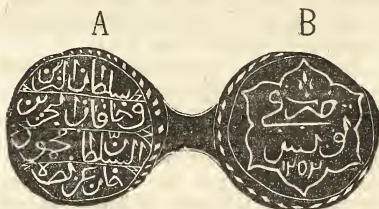 A
B
سلطان البرين
وخاقان البحرين
السلطان محمود
خان عز نصره
ضرب في
تونس
١٢٥٢